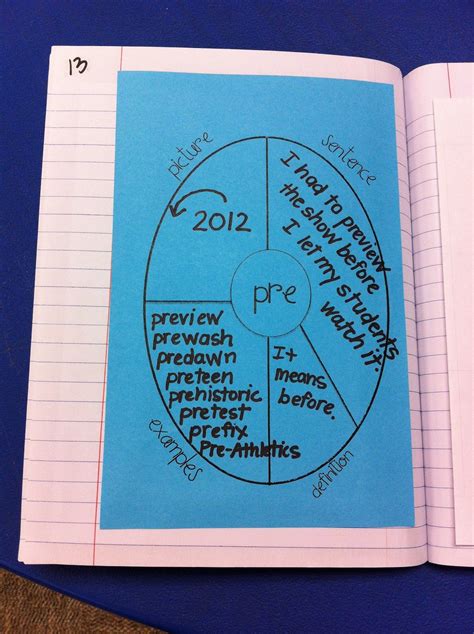 13
picture
2012
sentence
I had to preview
the show before
I let my students
watch it.
pre
preview
prewash
predawn
preteen
prehistoric
pretest
prefix
Pre-Athletics
examples
It
means
before.
definition